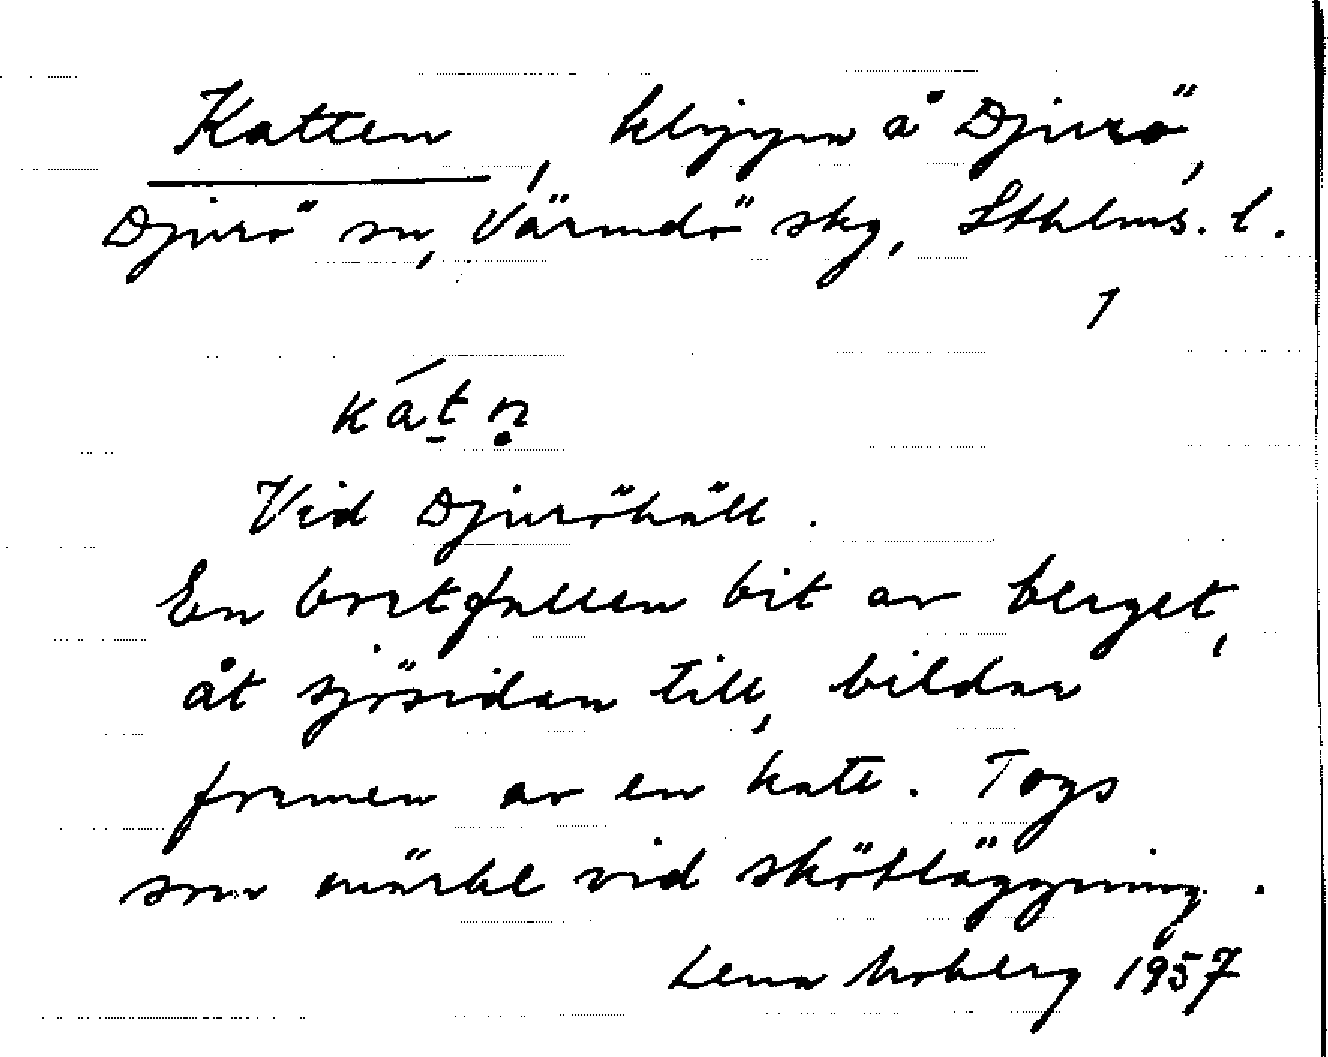 Katten, klippa å Djurö,
Djurö sn, Värmdö skg, Sthlms. l.
1
kát̠n̥
Vid Djuröhäll.
En bortfallen bit av berget,
åt sjösidan till, bildar
formen av en katt. Togs
som märke vid skötläggning.
Lena Moberg 1957